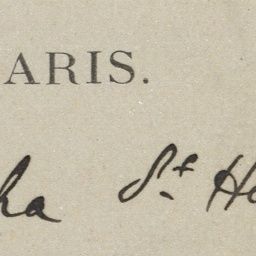 ARIS.
ha St Ho